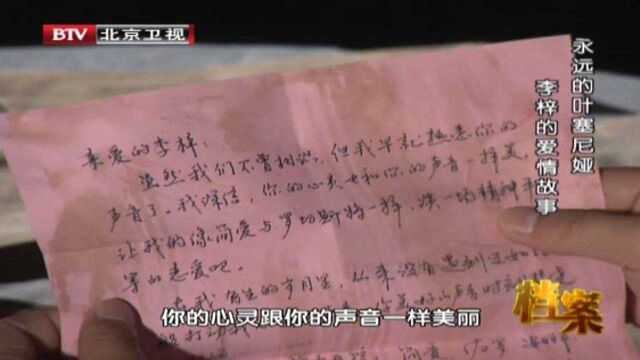 BTV 北京卫视
永远的叶塞尼娅
李梓的爱情故事
亲爱的李梓:
虽然我们不曾相识,但我早就熟悉你的
声音了。我深信,你的心灵也和你的声音一样美,
让我们像简爱与罗切斯特一样,谈一场精神平
等的恋爱吧。
在我有生的岁月里,从来没有遇到过如
你的心灵跟你的声音一样美丽
档案